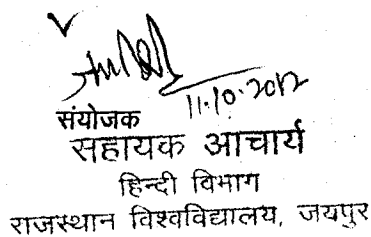 11.10.2012
संयोजक
सहायक आचार्य
हिन्दी विभाग
राजस्थान विश्वविद्यालय, जयपुर